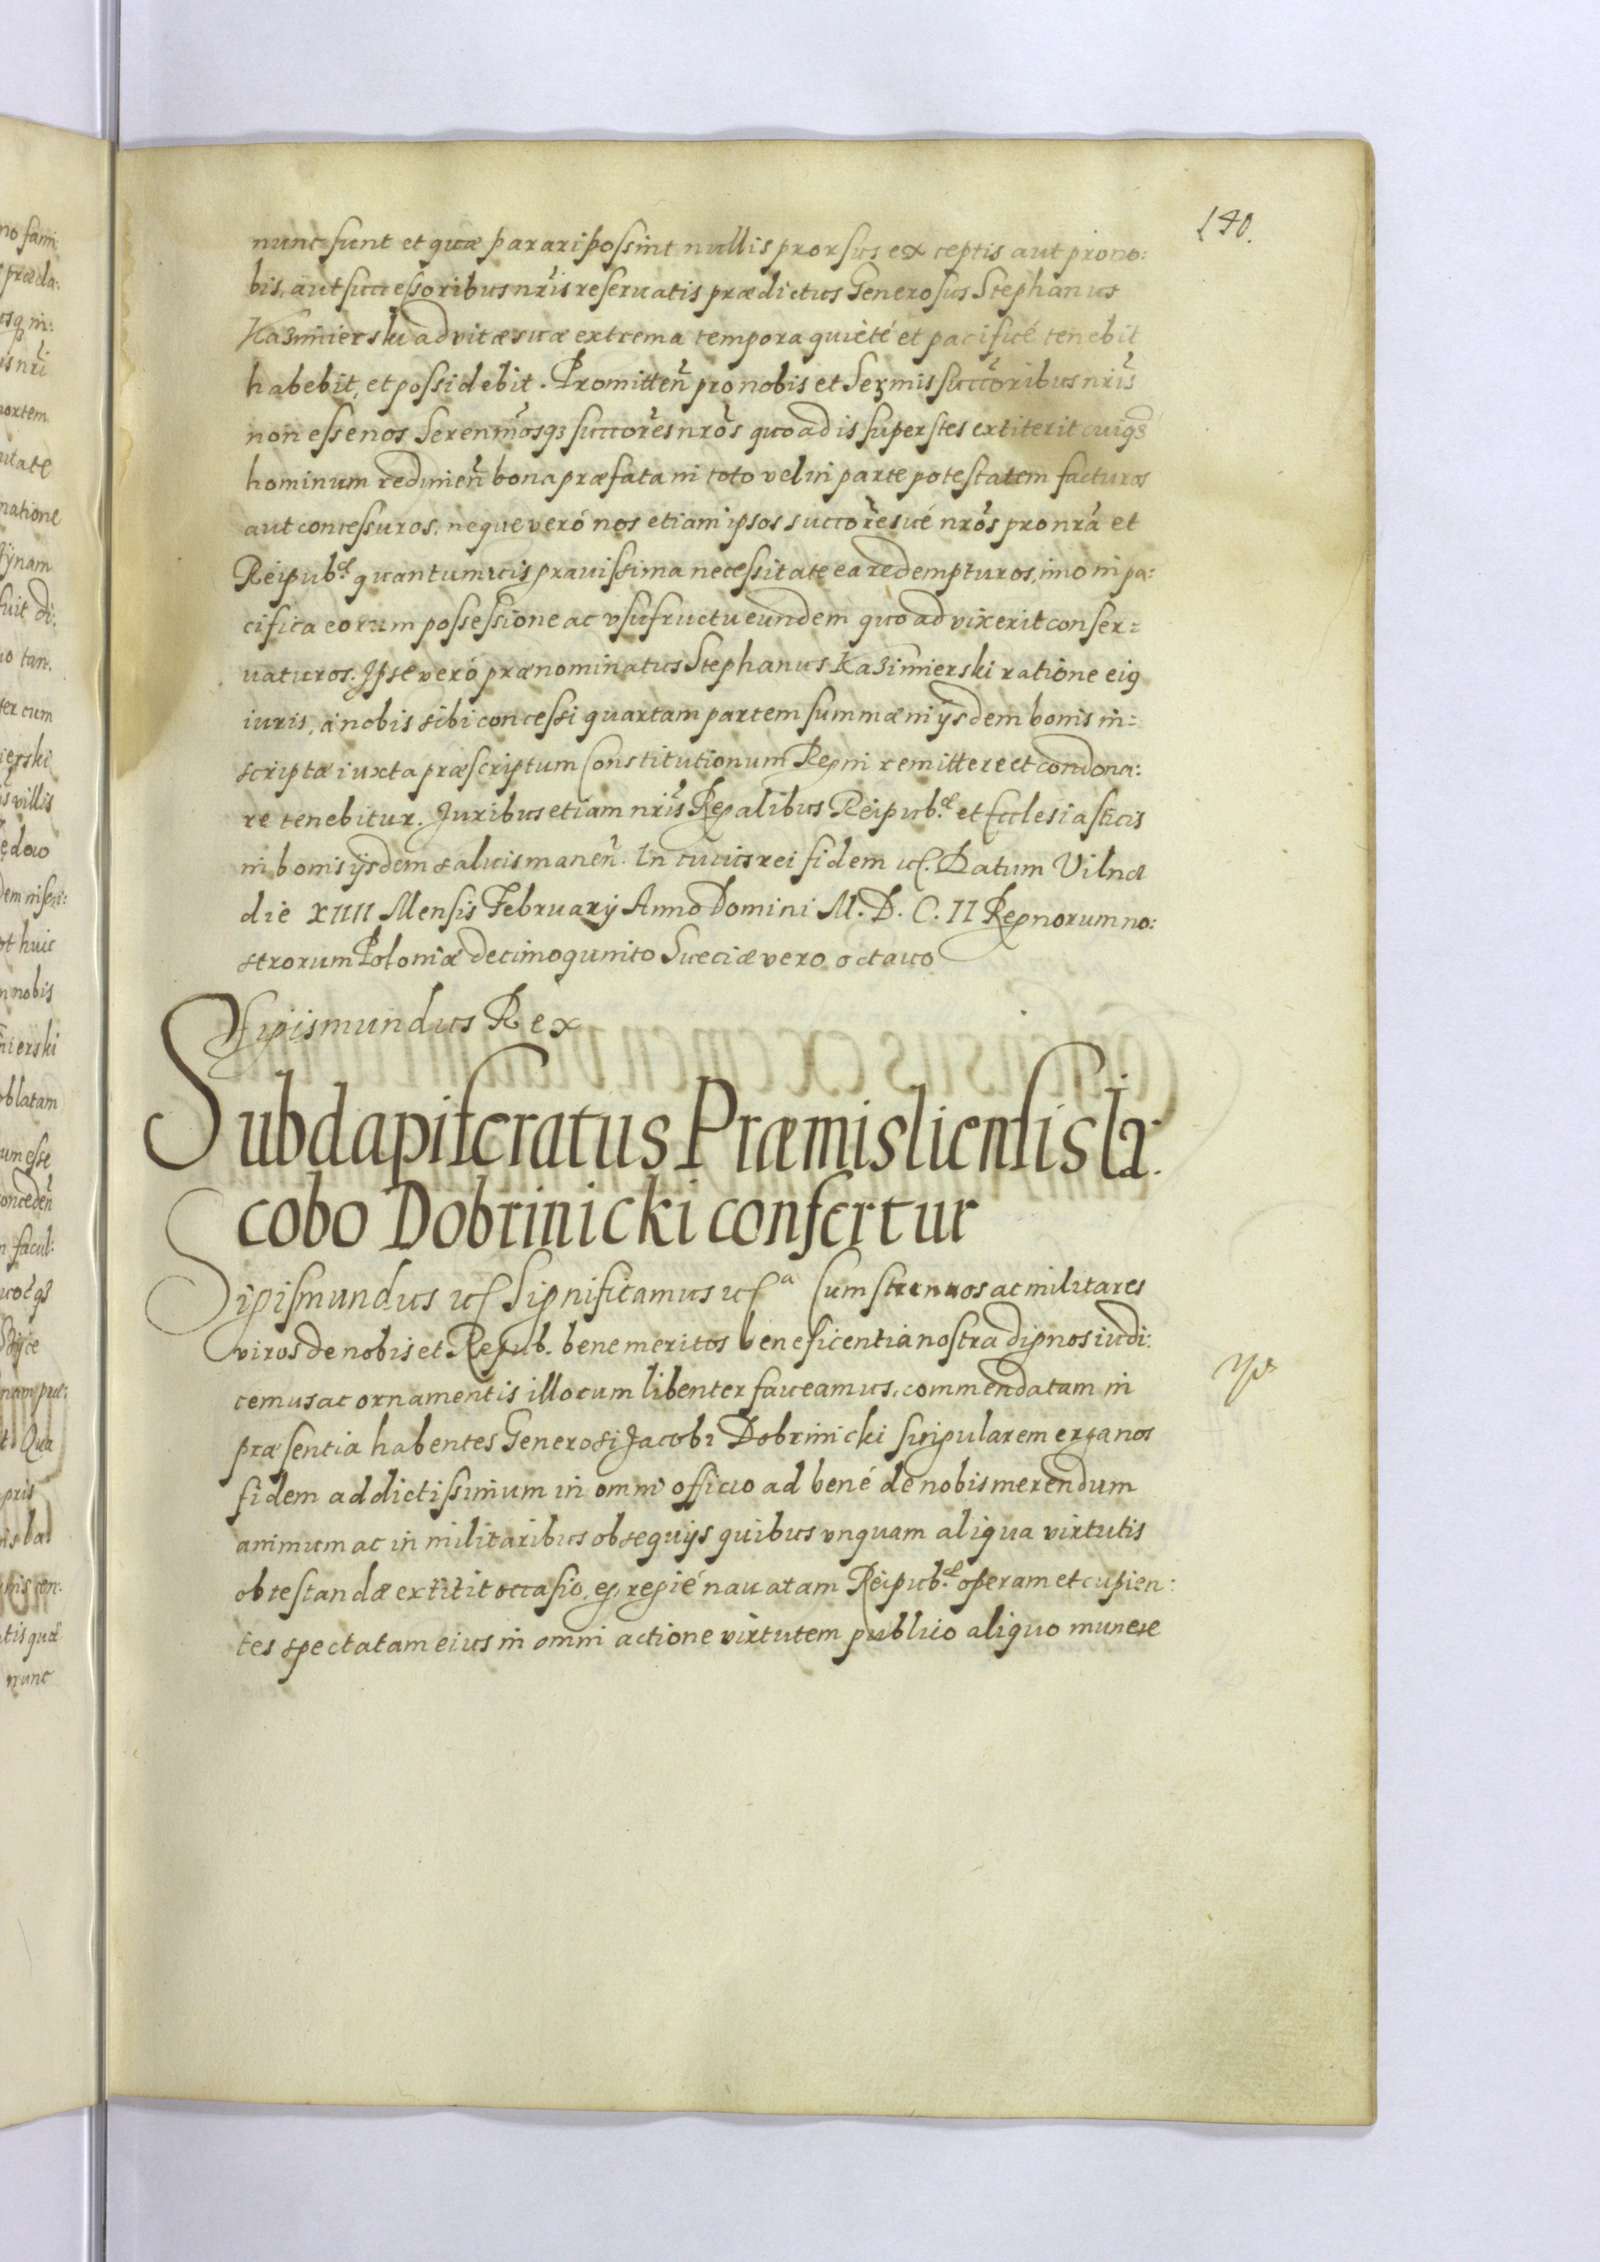 140.
nunc sunt et quæ parari possint nullis prorsus exceptis aut pro no:
bis, aut successoribus nr̃is reseruatis prædictus Generosus Stephanus
Kazimierski ad vitæ suæ extrema tempora quiètè et pacificé tenebit
habebit, et possidebit. Promitteñ pro nobis et Serm̃is succ̃oribus nr̃is
non esse nos Serenm̃osq₃ succores nr̃os quoad is superstes extiterit cuiq₃
hominum redimeñ bona præfata in toto vel in parte potestatem facturos
aut concessuros, neque veró nos etiam ipsos succõresué nr̃os pro nr̃a et
Reipub.æ quantumuis grauissima necessitate ea redempturos, imo in pa:
cifica eorum possessione ac vsufructu eundem quoad vixerit conser:
uaturos. Ipse veró prænominatus Stephanus Kazimierski ratione eiq
iuris, á nobis sibi concessi quartam partem summæ in ijsdem bonis in:
scriptæ iuxta præscriptum Constitutionum Regni remittere et condona:
re tenebitur. Juribus etiam nr̃is Regalibus Reipub.æ et Ecclesiasticis
in bonis ijsdem saluis maneñ. In cuius rei fidem etc. Datum Vilnæ
die XIIII Mensis February Anno Domini M. D. C. II Regnorum no:
strorum Poloniæ decimoquinto Sueciæ vero octauo
Sigismundus Rex
Subdapiferatus Præmisliensis Ia:
cobo Dobrinicki confertur
Sigismundus etc Significamus etc.a Cum strenuos ac militares
viros de nobis et Repub. bene meritos beneficentia nostra dignos iudi:
cemus ac ornamentis illorum libenter faueamus, commendatam in
præsentia habentes Generosi Jacobi Dobrinicki singularem erga nos
fidem addictissimum in omni officio ad bené de nobis merendum
animum ac in militaribus obsequijs quibus vnquam aliqua virtutis
obtestandæ extitit occasio, egregié nauatam Reipub.æ operam et cupien:
tes spectatam eius in omni actione virtutem publico aliquo munere